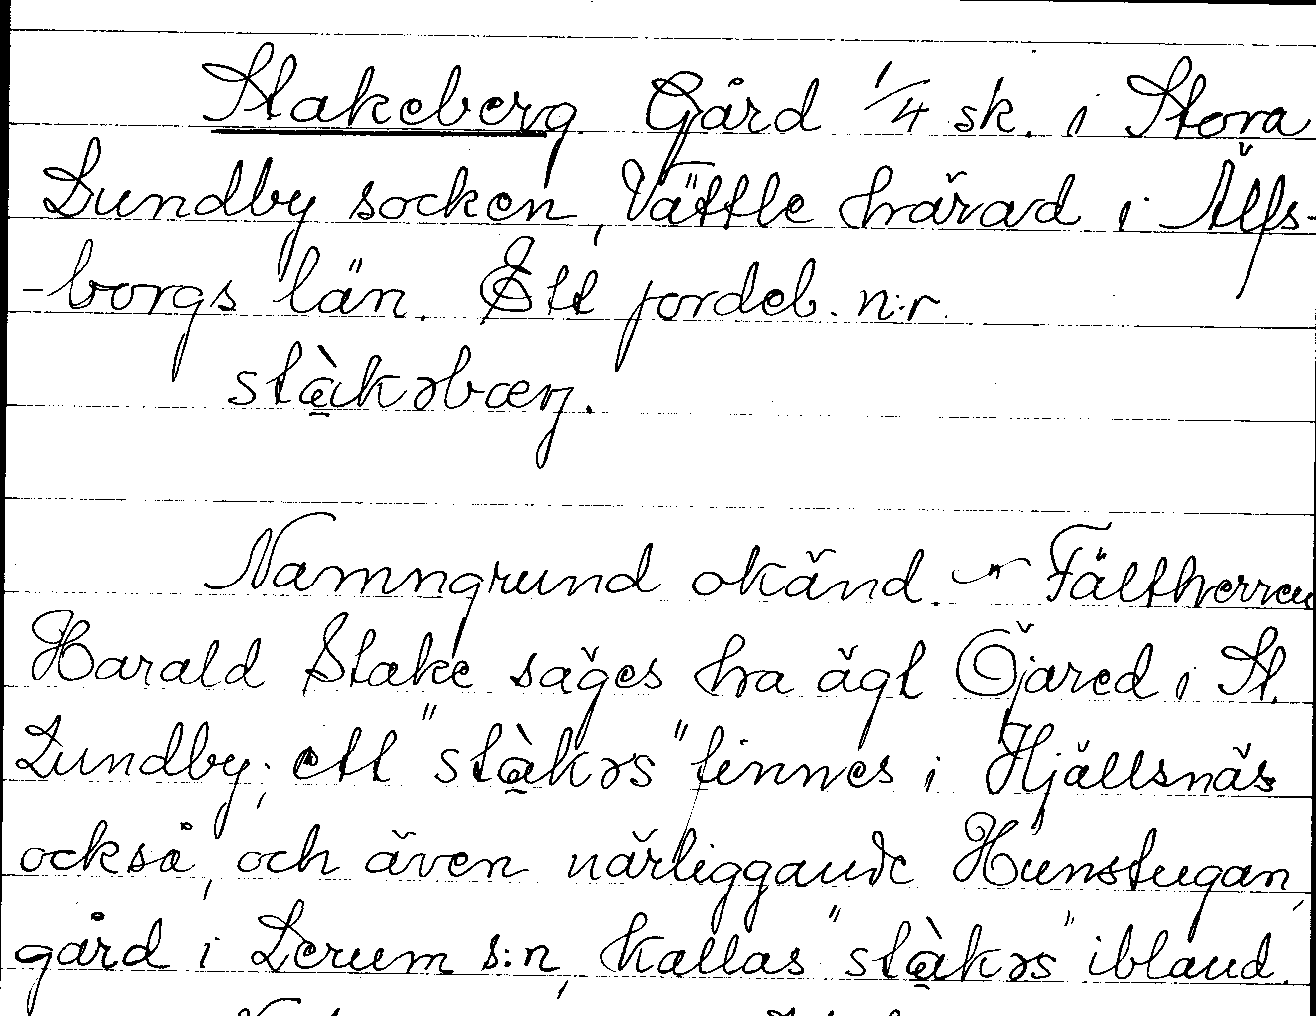 Stakeberg Gård 1/4 sk. i Stora
Lundby socken, Vättle härad i Älfs-
-borgs län. Ett jordeb. n:r
stàkəbærj.
Namngrund okänd. – Fältherren
Harald Stake säges ha ägt Öjared i St.
Lundby; ett "stàkəs" finnes i Hjällsnäs
också, och även närliggande Hunstugan,
gård i Lerum s:n, kallas "stàkəs" ibland.